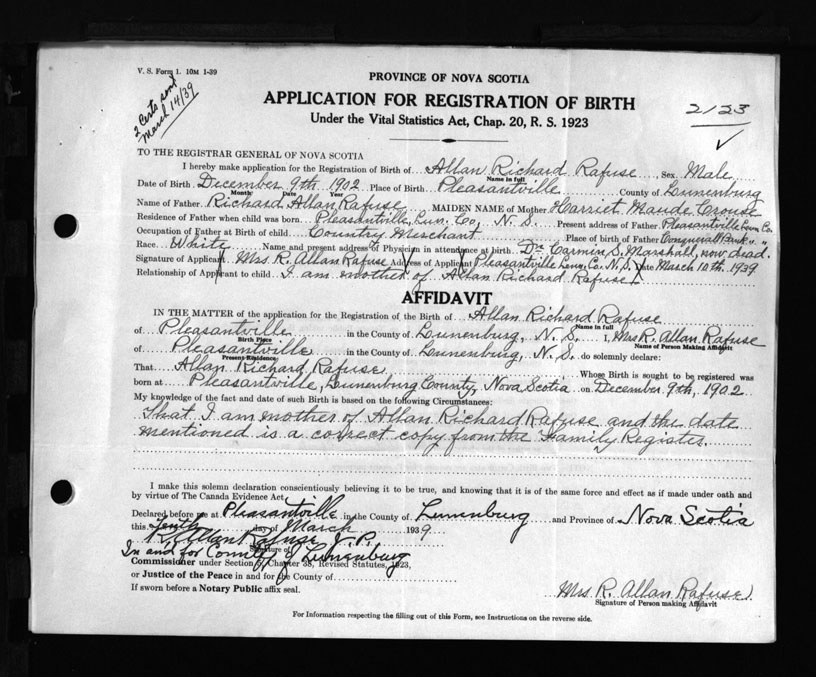 V. S. Form 1. 10M 1-39
2 Certs sent
March 14/39
PROVINCE OF NOVA SCOTIA
APPLICATION FOR REGISTRATION OF BIRTH
2123
Under the Vital Statistics Act, Chap. 20, R. S. 1923
TO THE REGISTRAR GENERAL OF NOVA SCOTIA
I hereby make application for the Registration of Birth of Allan Richard Rafuse Sex Male
Name in full
Date of Birth December 9th 1902 Place of Birth Pleasantville County of Lunenburg
Month Date Year
Name of Father Richard Allan Rafuse MAIDEN NAME of Mother Harriet Maude Crouse
Residence of Father when child was born Pleasantville, Lun. Co., N. S. Present address of Father Pleasantville Lun. Co.
Occupation of Father at Birth of child Country Merchant Place of birth of Father Conquerall Bank " "
Race White Name and present address of Physician in attendance at birth Dr. Carmin S. Marshall, now dead.
Signature of Applicant Mrs R. Allan Rafuse Address of Applicant Pleasantville Lun. Co. N. S. Date March 10th 1939
Relationship of Applicant to child I am mother of Allan Richard Rafuse
AFFIDAVIT
IN THE MATTER of the application for the Registration of the Birth of Allan Richard Rafuse
Name in full
of Pleasantville in the County of Lunenburg, N. S. I, Mrs R. Allan Rafuse
Birth Place Name of Person Making Affidavit
of Pleasantville in the County of Lunenburg, N. S. do solemnly declare:
Present Residence
That Allan Richard Rafuse Whose Birth is sought to be registered was
born at Pleasantville, Lunenburg County, Nova Scotia on December 9th, 1902
My knowledge of the fact and date of such Birth is based on the following Circumstances:
That I am mother of Allan Richard Rafuse and the date
mentioned is a correct copy from the Family Register.
I make this solemn declaration conscientiously believing it to be true, and knowing that it is of the same force and effect as if made under oath and
by virtue of The Canada Evidence Act
Declared before me at Pleasantville in the County of Lunenburg and Province of Nova Scotia
this Tenth day of March 1939
R. Allan Rafuse J. P.
Signature of
In and for County of Lunenburg
Commissioner under Section 5, Chapter 38, Revised Statutes, 1923,
or Justice of the Peace in and for the County of
If sworn before a Notary Public affix seal.
Mrs R. Allan Rafuse
Signature of Person making Affidavit
For Information respecting the filling out of this Form, see Instructions on the reverse side.